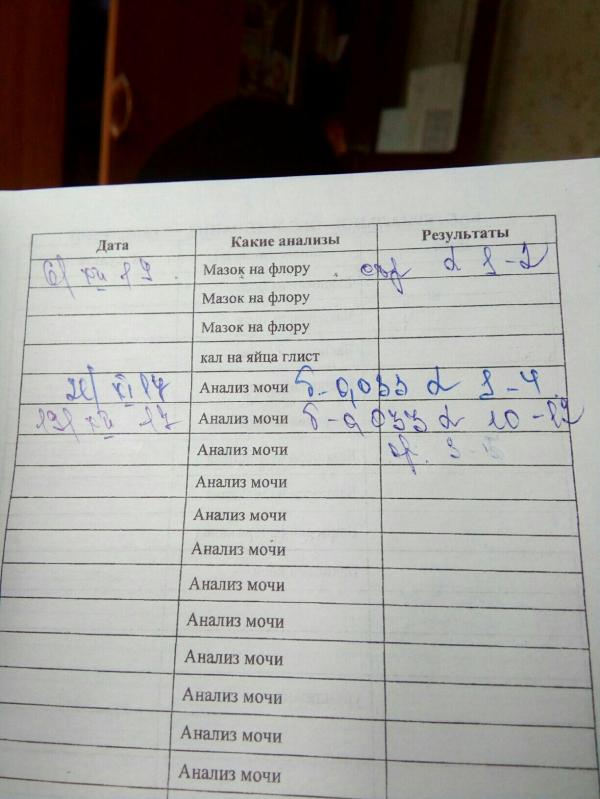 Дата Какие анализы Результаты
6/XII 17 Мазок на флору L 1-2
Мазок на флору
Мазок на флору
кал на яйца глист
XI 17 Анализ мочи б-0,033 L 3-4
19/XII 17 Анализ мочи б-0,033 L 10-12
Анализ мочи
Анализ мочи
Анализ мочи
Анализ мочи
Анализ мочи
Анализ мочи
Анализ мочи
Анализ мочи
Анализ мочи
Анализ мочи